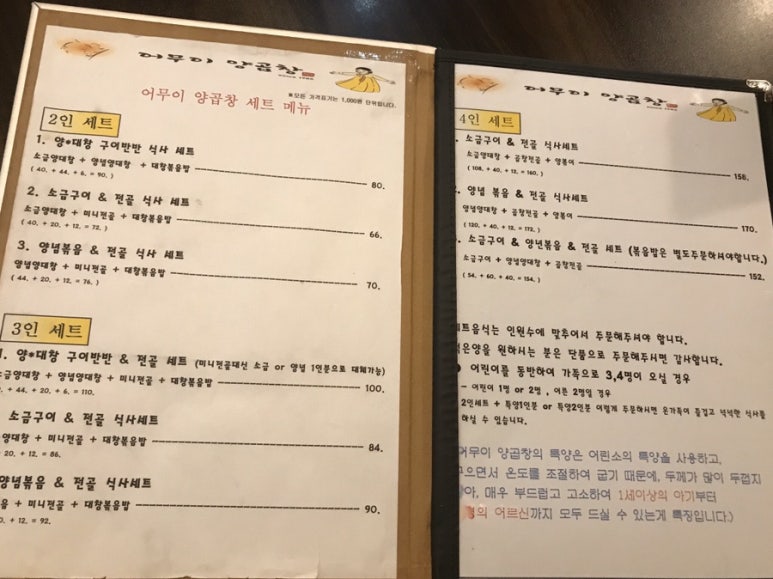 어무이 양곱창
SINCE 1998
어무이 양곱창 세트 메뉴
※모든 가격표기는 1,000원 단위입니다.
2인 세트
1. 양*대창 구이반반 식사 세트
소금양대창 + 양념양대창 + 대창볶음밥 80.
( 40. + 44. + 6. = 90. )
2. 소금구이 & 전골 식사 세트
소금양대창 + 미니전골 + 대창볶음밥 66.
( 40. + 20. + 12. = 72. )
3. 양념볶음 & 전골 식사 세트
양념양대창 + 미니전골 + 대창볶음밥 70.
( 44. + 20. + 12. = 76. )
3인 세트
1. 양*대창 구이반반 & 전골 세트 (미니전골대신 소금 or 양념 1인분으로 대체가능)
소금양대창 + 양념양대창 + 미니전골 + 대창볶음밥 100.
+ 44. + 20. + 6. = 110.
소금구이 & 전골 식사세트
양대창 + 미니전골 + 대창볶음밥 84.
+ 20. + 12. = 86.
양념볶음 & 전골 식사세트
+ 미니전골 + 대창볶음밥 90.
+ 12. = 92.
어무이 양곱창
4인 세트
1. 소금구이 & 전골 식사세트
소금양대창 + 곱창전골 + 양볶이 158.
( 108. + 40. + 12. = 160. )
2. 양념 볶음 & 전골 식사세트
양념양대창 + 곱창전골 + 양볶이 170.
( 120. + 40. + 12. = 172. )
소금구이 & 양념볶음 & 전골 세트 (볶음밥은 별도주문하셔야합니다.)
소금구이 + 양념양대창 + 곱창전골 152.
( 54. + 60. + 40. = 154. )
세트음식는 인원수에 맞추어서 주문해주셔야 합니다.
적은양을 원하시는 분은 단품으로 주문해주시면 감사합니다.
어린이를 동반하여 가족으로 3,4명이 오실 경우
- 어린이 1명 or 2명 , 어른 2명일 경우
2인세트 + 특양1인분 or 특양2인분 이렇게 주문하시면 온가족이 즐겁고 넉넉한 식사를
하실 수 있습니다.
어무이 양곱창의 특양은 어린소의 특양을 사용하고,
구으면서 온도를 조절하여 굽기 때문에, 두께가 많이 두껍지
않아, 매우 부드럽고 고소하여 1세이상의 아기부터
어르신까지 모두 드실 수 있는게 특징입니다.)